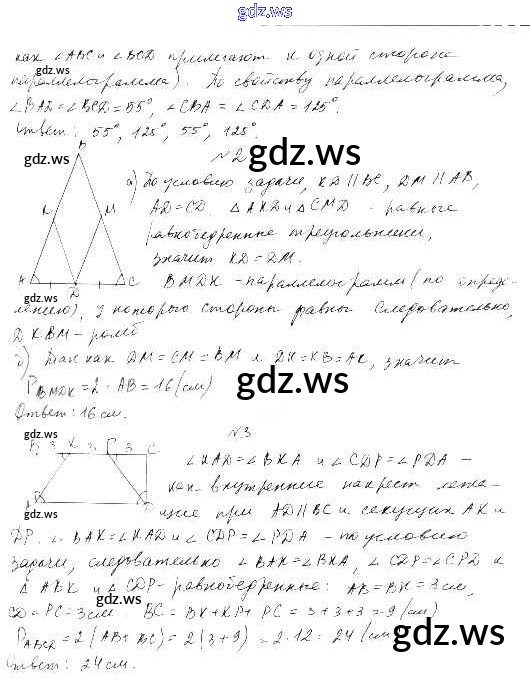 gdz.ws
как ∠ABC и ∠BCD прилежат к одной стороне
параллелограмма). По свойству параллелограмма,
gdz.ws
∠BAD = ∠BCD = 55°, ∠CBA = ∠CDA = 125°.
Ответ: 55°, 125°, 55°, 125°.
№2
gdz.ws
gdz.ws
B
а) По условию задачи, KD ∥ BC, DM ∥ AB,
AD = CD. △AKD и △CMD - равные
K M
равнобедренные треугольники,
gdz.ws
значит KD = DM.
A D C
BMDK - параллелограмм (по опреде-
лению), у которого стороны равны. Следовательно,
DKBM - ромб
б) Так как DM = CM = BM и DK = KB = AK, значит
P BMDK = 2 · AB = 16 (см)
gdz.ws
gdz.ws
Ответ: 16 см.
gdz.ws
№3
B 3 K 3 P 3 C
∠KAD = ∠BKA и ∠CDP = ∠PDA -
как внутренние накрест лежа-
gdz.ws
щие при AD ∥ BC и секущих AK и
A D
DP. ∠BAK = ∠KAD и ∠CDP = ∠PDA - по условию
задачи, следовательно ∠BAK = ∠BKA, ∠CDP = ∠CPD и
△ABK и △CDP - равнобедренные: AB = BK = 3 см,
gdz.ws
CD = PC = 3 см BC = BK + KP + PC = 3 + 3 + 3 = 9 (см)
P ABCD = 2 (AB + BC) = 2 (3 + 9) = 2 · 12 = 24 (см)
gdz.ws
Ответ: 24 см.